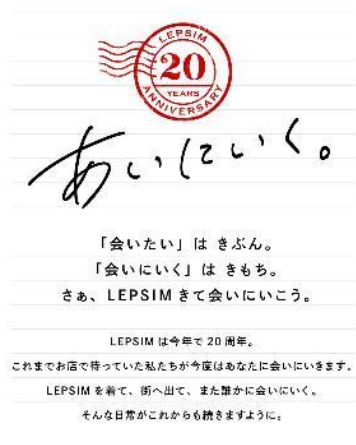 LEPSIM
20
YEARS
ANNIVERSARY
あいにいく。
「会いたい」は きぶん。
「会いにいく」は きもち。
さぁ、LEPSIM きて会いにいこう。
LEPSIM は今年で 20 周年。
これまでお店で待っていた私たちが今度はあなたに会いにいきます。
LEPSIM を着て、街へ出て、また誰かに会いにいく。
そんな日常がこれからも続きますように。